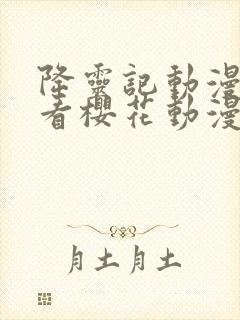 降靈記動漫
看櫻花動漫
月土月土